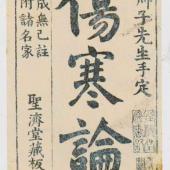 師子先生手定
傷寒論
成無己註
附諸名家
聖濟堂藏板